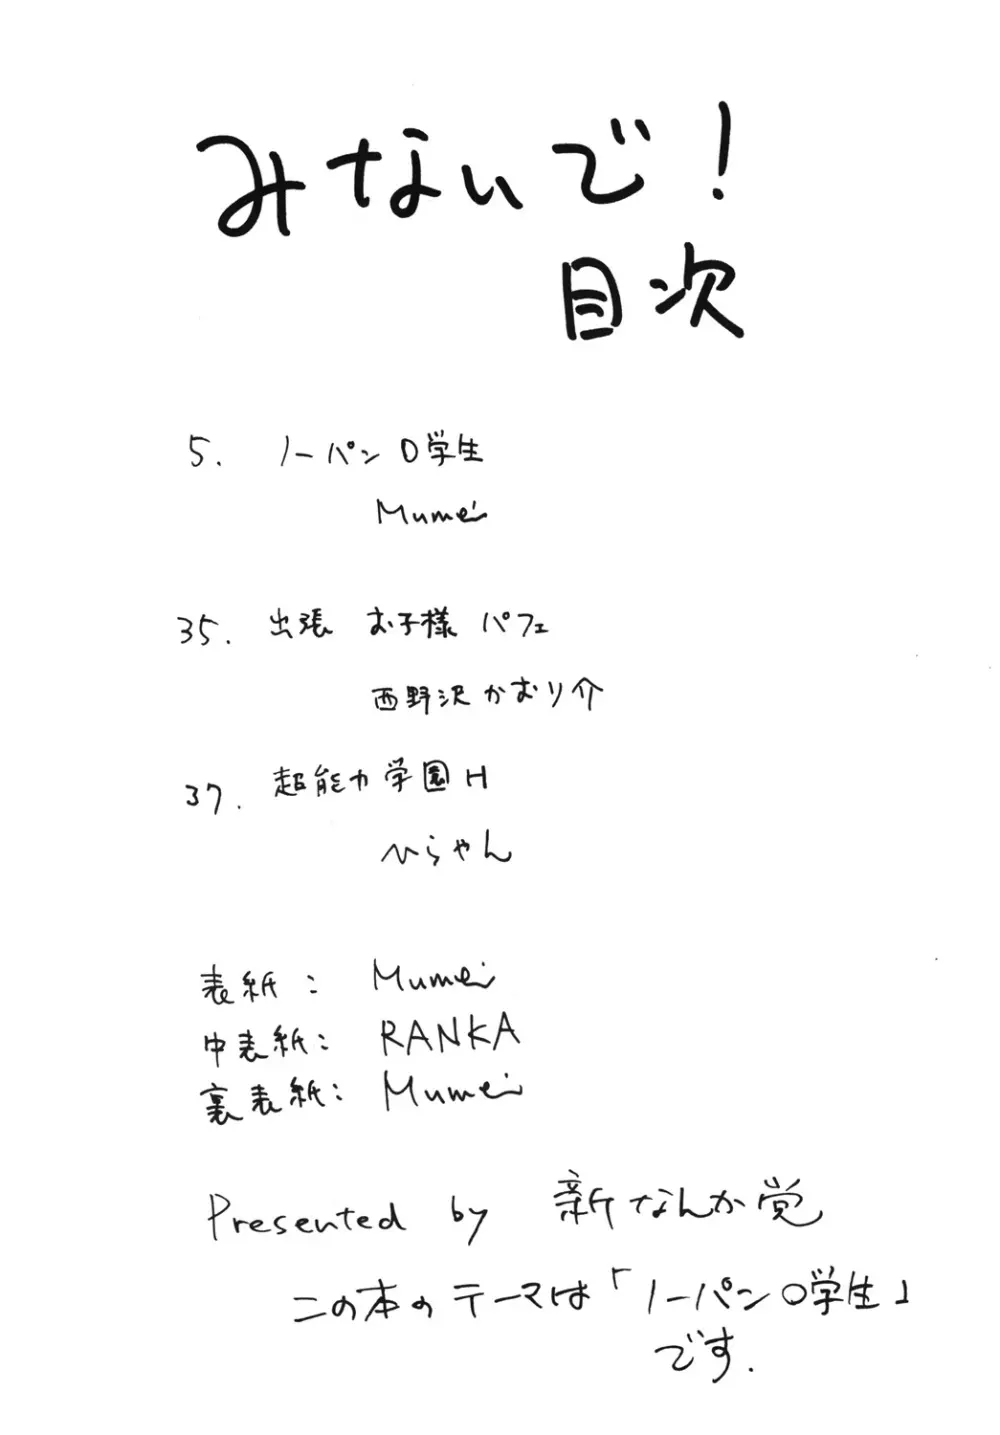 みないで!
目次
5. ノーパン〇学生
Mumei
35. 出張 お子様パフェ
西野沢かおり介
37. 超能力学園H
ひらやん
表紙: Mumei
中表紙: RANKA
裏表紙: Mumei
Presented by 新なんか党
この本のテーマは「ノーパン〇学生」
です.